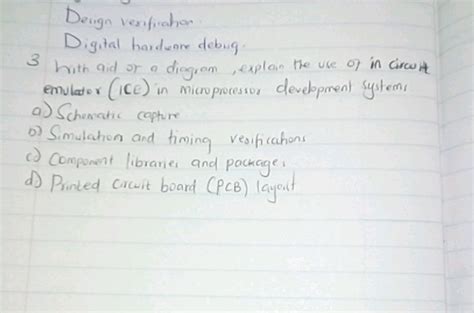 Design verification.
Digital hardware debug.
3 With aid of a diagram, explain the use of in circuit
emulator (ICE) in microprocessor development systems
a) Schematic capture
b) Simulation and timing verifications
c) Component libraries and packages
d) Printed circuit board (PCB) layout